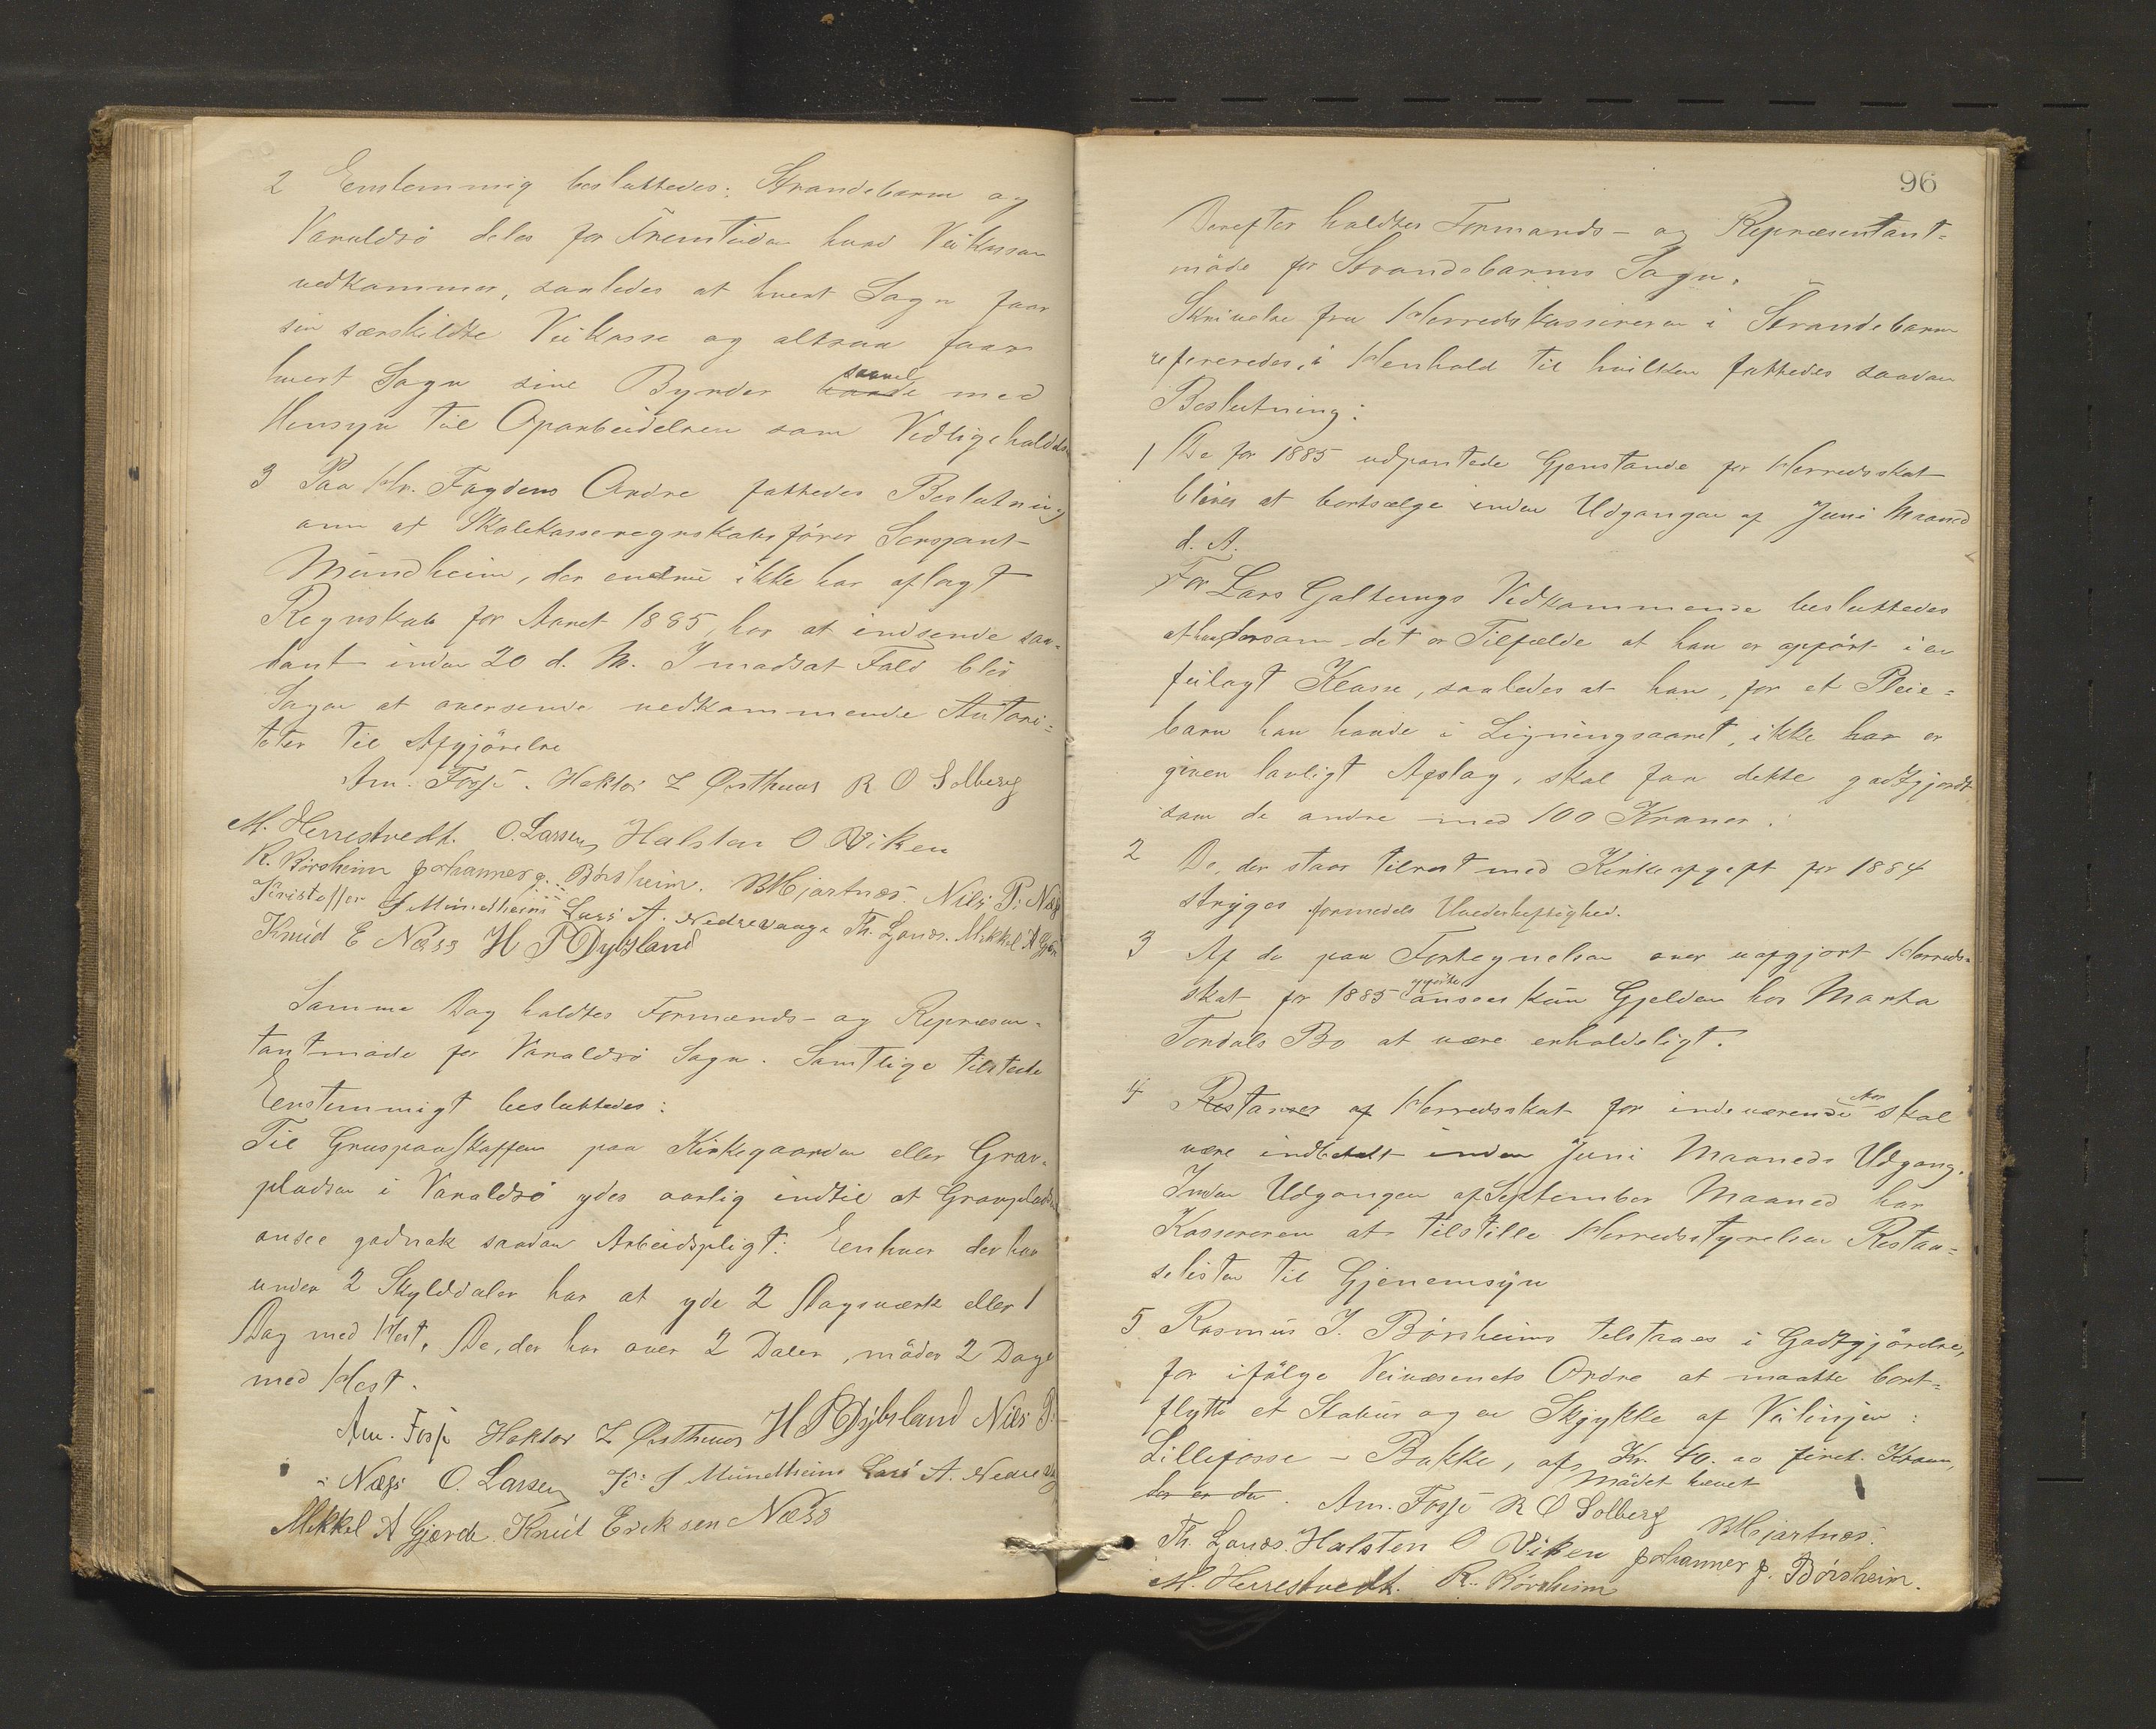 2 Eenstemmig besluttedes: Strandebarm og
Varaldsö deles for Fremtiden hvad Veikassen
vedkommer, saaledes at hvert Sogn faar
sin særskildte Veikasse og altsaa faar
hvert Sogn sine Byrder baade saavel med
Hensyn til Oparbeidelsen som Vedligeholdelsen
3 Paa Hr. Fogdens Ordre fattedes Beslutning
om at Skolekasseregnskabsförer Sersjant
Mundheim, der endnu ikke har aflagt
Regnskab for Aaret 1885, har at indsende saa-
dant inden 20 d. M. I modsat Fald blir
Sagen at oversende vedkommende Autori=
teter til Afgjörelse
Am. Fosse. Hektor L Østhuus R O Solberg
M. Herrestvedt. O. Larsen Halsten O Viken
R. Börsheim Johannes J. Börsheim. B Hjartnæs. Nils P. Næs
Kristoffer S Mundheim Lars A. Nedrevaage Th. Ljones. Mikkel A Gjerde
Knud E Næss H P Dybsland
Samme Dag holdtes Formands- og Repræsen-
tantmöde for Varaldsö Sogn. Samtlige tilstede
Eenstemmigt besluttedes:
Til Gruspaaskaffen paa Kirkegaarden eller Grav-
pladsen i Varaldsö ydes aarlig indtil at Gravpladsen
ansee godnok saadan Arbeidspligt: Eenhver der har
under 2 Skylddaler har at yde 2 Dagsværk eller 1
Dag med Hest. De, der har over 2 Daler, möder 2 Dage
med Hest.
Am. Fosse Hektor L Østhuus H P Dybsland Nils P.
Næss O. Larsen Kr. S Mundheim Lars A. Nedrevaage
Mikkel A Gjerde Knud Eriksen Næss
96
Derefter holdtes Formands- og Repræsentant=
möde for Strandebarms Sogn.
Skrivelse fra Herredskassereren i Strandebarm
refereredes, i Henhold til hvilken fattedes saadan
Beslutning:
1 De for 1885 udpantede Gjenstande for Herredsskat
blives at bortsælge inden Udgangen af Juni Maaned
d. A.
For Lars Galtungs Vedkommende besluttedes
at han dersom det er Tilfælde at han er opfört i en
feilagt Klasse, saaledes at han, for et Pleie=
barn han havde i Ligningsaaret, ikke har er
given lovligt Afslag, skal faa dette godtgjordt
som de andre med 100 Kroner.
2 De, der staar tilrest med Kirkeafgift for 1884
stryges formedels Uvederheftighed.
3 Af de paa Fortegnelsen over uafgjort Herreds-
skat for 1885 opförte ansees kun Gjelden hos Marta
Tordals Bo at være erholdeligt.
4 Restanser af Herredsskat for indeværende Aar skal
være indbetalt inden Juni Maaneds Udgang.
Inden Udgangen af September Maaned har
Kassereren at tilstille Herredsstyrelsen Restan=
selisten til Gjenemsyn
5 Rasmus J. Börsheim tilstaaes i Godtgjörelse,
for ifölge Veivæsenets Ordre at maatte bort=
flytte et Stabur og en Skjykke af Veilinjen:
Lillefosse - Bakke, af Kr. 40.00 firet. Kroner,
der er du. Mödet hævet
Am. Fosse R O Solberg B Hjartnæs.
Th. Ljones. Halsten O Viken Johannes J. Börsheim.
M. Herrestvedt. R. Börsheim